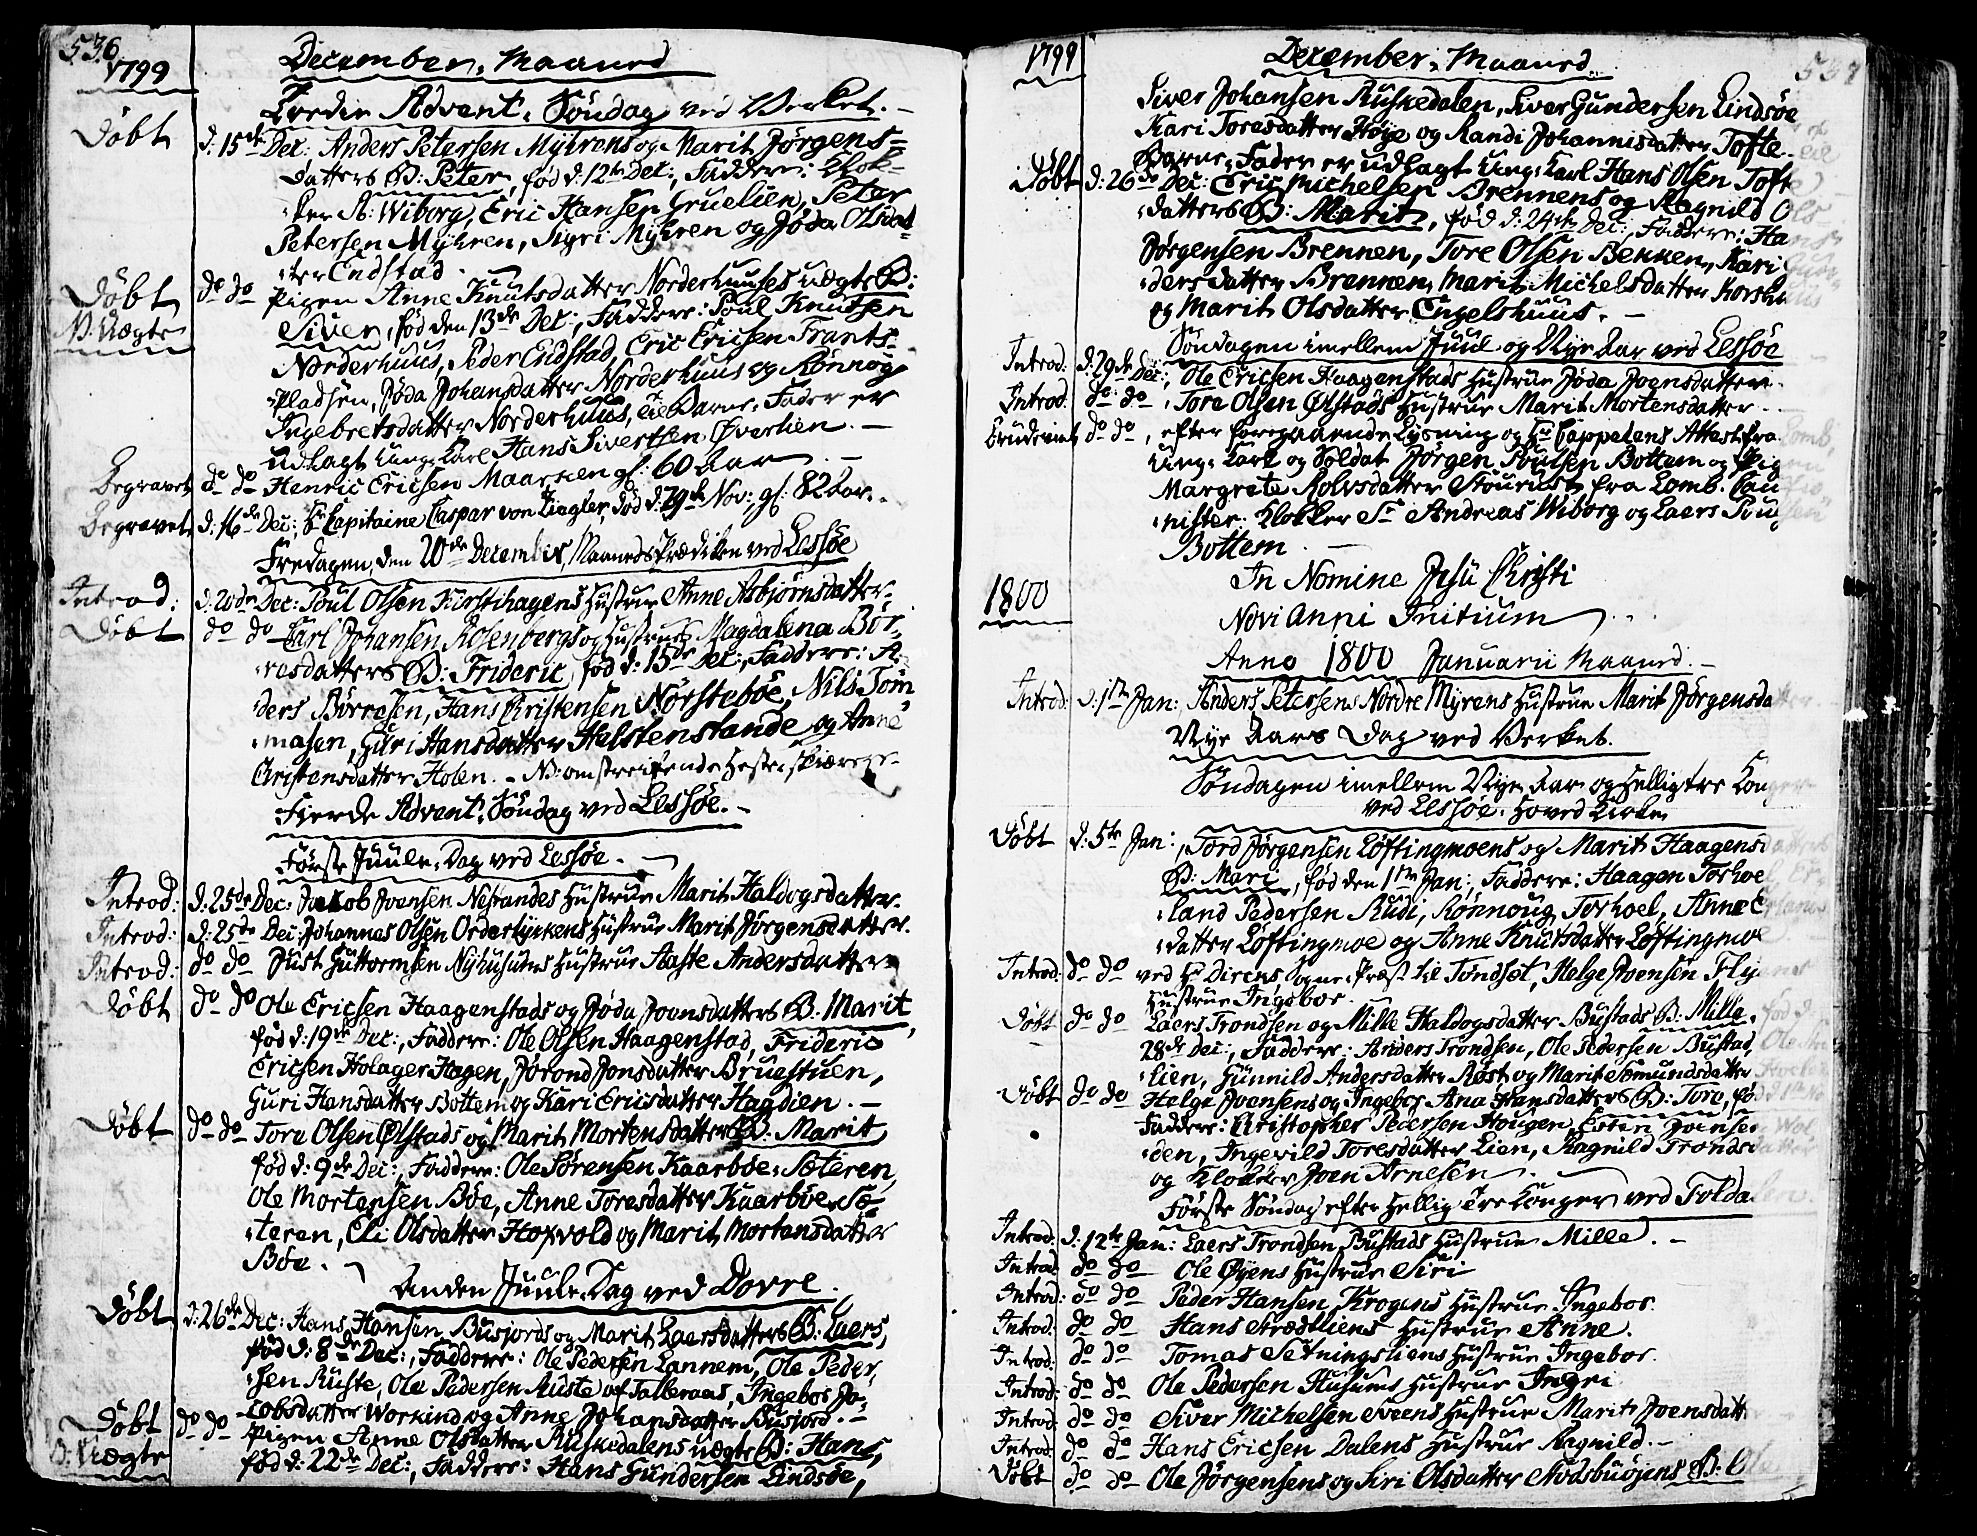 536
1799
December Maaned
Tredie Advent Søndag ved Verket.
Døbt d: 15de Dec: Anders Petersen Myhrens og Marit Jørgens=
datters B: Peter, fød d: 12te Dec:, Faddere: Klok-
ker A: Wiborg, Eric Hansen Gruelien, Peter
Petersen Myhren, Sigri Myhren og Jøda Olsdat=
ter Endstad.
Døbt do do Pigen Anne Knutsdatter Norderhuuses uægte B:
N. Uægte Siver, fød den 13de Dec:, Faddere: Poul Knutsen
Norderhuus, Peder Endstad, Eric Ericsen Frants-
Pladsen, Jøda Johansdatter Norderhuus og Rønnog
Ingebretsdatter Norderhuus, til Barne-Fader er
udlagt Ung-Karl Hans Sivertsen Øverlien.
Begravet do do Henric Ericsen Maarstien gl: 60 Aar.
Begravet d: 16de Dec: Hr Capitaine Caspar von Ziegler, død d: 29de Nov:, gl: 82 Aar.
Fredagen den 20de December, Maaneds Prædiken ved Lessøe
Introd: d: 20de Dec: Poul Olsen Kirstihagens Hustrue Anne Asbjørnsdatter.
Døbt do do Carl Johansen Rosenbergs og Hustrues Magdalena Bør-
resdatters B: Frideric, fød d: 15de Dec:, Faddere: A-
ders Børresen, Hans Christensen Nørstebøe, Nils Tom
masen, Guri Hansdatter Holstenstande og Anne
Christensdatter Holen. - N: omstreifende
Fierde Advent Søndag ved Lessøe.
Første Juule-Dag ved Lessøe.
Introd: d: 25de Dec: Jakob Joensen Nestandes Hustrue Marit Haldogsdatter.
Introd: d: 25de Dec: Johannes Olsen Orderlyckens Hustrue Marit Jørgensdatter.
Introd: do do Just Guttormsen Nyhusums Hustrue Aaste Andersdatter
Døbt do do Ole Ericsen Haagenstads og Jøda Joensdatters B: Marit,
fød d: 19de Dec:, Faddere: Ole Olsen Haagenstad, Frideric
Ericsen Holager Hagen, Jørond Jonsdatter Bruestuen,
Guri Hansdatter Bottem og Kari Ericsdatter Hagdien.
Døbt do do Tore Olsen Ølstads og Marit Mortensdatters B: Marit,
fød d: 9de Dec:, Faddere: Ole Sørensen Kaarbøe-Sæteren,
Ole Mortensen Bøe, Anne Toresdatter Kaarbøe-Sæ-
teren, Eli Olsdatter Hoxvold og Marit Mortensdatter
Bøe.
Anden Juule-Dag ved Dovre.
Døbt d: 26de Dec: Hans Hansen Busjords og Marit Laersdatters B: Laers,
fød d: 8de Dec:, Faddere: Ole Pedersen Lannem, Ole Peder-
sen Ruste, Ole Pedersen Ruste af Talleraas, Ingebor Ja-
cobsdatter Workind og Anne Johansdatter Busjord.
Døbt do do Pigen Anne Olsdatter Ruskedalens uægte B: Hans,
N. Uægte fød d: 22de Dec:, Faddere: Hans Gundersen Lindsøe,
1799
December Maaned
537
Siver Johansen Ruskedalen, Siver Gundersen Lindsøe
Kari Toresdatter Høye og Randi Johannisdatter Tofte
Barne-Fader er udlagt Ung-Karl Hans Olsen Tofte
Døbt d: 26de Dec: Eric Michelsen Brennens og Ragnild Ols-
datters B: Marit, fød d: 24de Dec:, Faddere: Hans
Jørgensen Brennen, Tore Olsen Bekken, Kari Gun-
dersdatter Brennen, Marit Michelsdatter Korshuus
og Marit Olsdatter Engelshuus.
Søndagen imellem Juul og Nye Aar ved Lessøe
Introd. d: 29de Dec:, Ole Ericsen Haagenstads Hustrue Jøda Joensdatter.
Introd: do do, Tore Olsen Ølstads Hustrue Marit Mortensdatter
Brudeviet do do, efter foregaaende Lysning og Hr Cappelens Attest fra Lomb,
Ung-Karl og Soldat Jørgen Poulsen Bottem og Pigen
Margrete Rolvsdatter Stourust fra Lomb. Cautio-
nister: Klokker Sr Andreas Wiborg og Laers Poulsen
Bottem.
In Nomine Jesu Christi
1800
Novi Anni Initium
Anno 1800 Januarii Maaned.
Introd: d: 1te Jan: Anders Petersens Nordre Myrens Hustrue Marit Jørgensdatter.
Nye Aars Dag ved Verket.
Søndagen imellem Nye Aar og Hellig tre Konger
ved Lessøe Hoved Kirke.
Døbt d: 5te Jan:, Tord Jørgensen Løftingmoens og Marit Haagensdatters
B: Mari, fød den 1te Jan:, Faddere: Haagen Torhoel, Er-
land Pedersen Rudi, Rønnoug Torhoel, Anne Erlands-
datter Løftingmoe og Anne Knutsdatter Løftingmoe
Introd: do do ved Hr Dircks Sogne-Præst til Tøndset, Helge Joensen Flyens
Hustrue Ingebor.
Døbt do do Laers Trondsen og Mille Haldogsdatter Bustads B: Mille, fød d:
28de Dec:, Faddere: Anders Trondsen, Ole Pedersen Bustad, Ole
lien, Gunnild Andersdatter Røst og Marit Semundsdatter
Døbt do do Helge Joensens og Ingebor Ana Hansdatters B: Tore, fød d 1te
Faddere: Christopher Pedersen Hougen, Esten Joensen
den, Ingerild Toresdatter Lien, Ragnild Trondsdatter
og Klokker Joen Arnesen
Første Søndag efter Hellig Tre Konger ved Foldalen.
Introd: d: 12te Jan: Laers Trondsen Bustads Hustrue Mille.
Introd: do do Ole Øyens Hustrue Siri
Introd: do do Peder Hansen Krogens Hustrue Ingebor.
Introd: do do Hans Strædliens Hustrue Anne.
Introd: do do Tomas Sætningsliens Hustrue Ingebor.
Introd: do do Ole Pedersen Husums Hustrue Ingri
Introd: do do Siver Michelsen Sveens Hustrue Marit Joensdatter
Introd: do do Hans Ericsen Dalens Hustrue Ragnild.
Døbt do do Ole Jørgensens og Siri Olsdatter Stodsbuøjens B: Ole